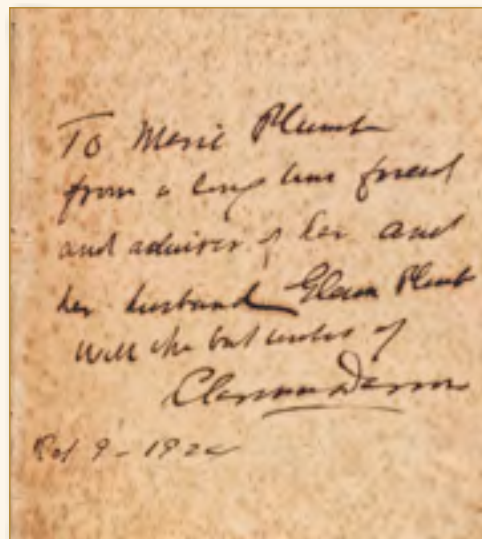 To Marie Plumb
from a long time friend
and admirer of her and
her husband Glenn Plumb
With the best wishes of
Clarence Darrow
9 - 192